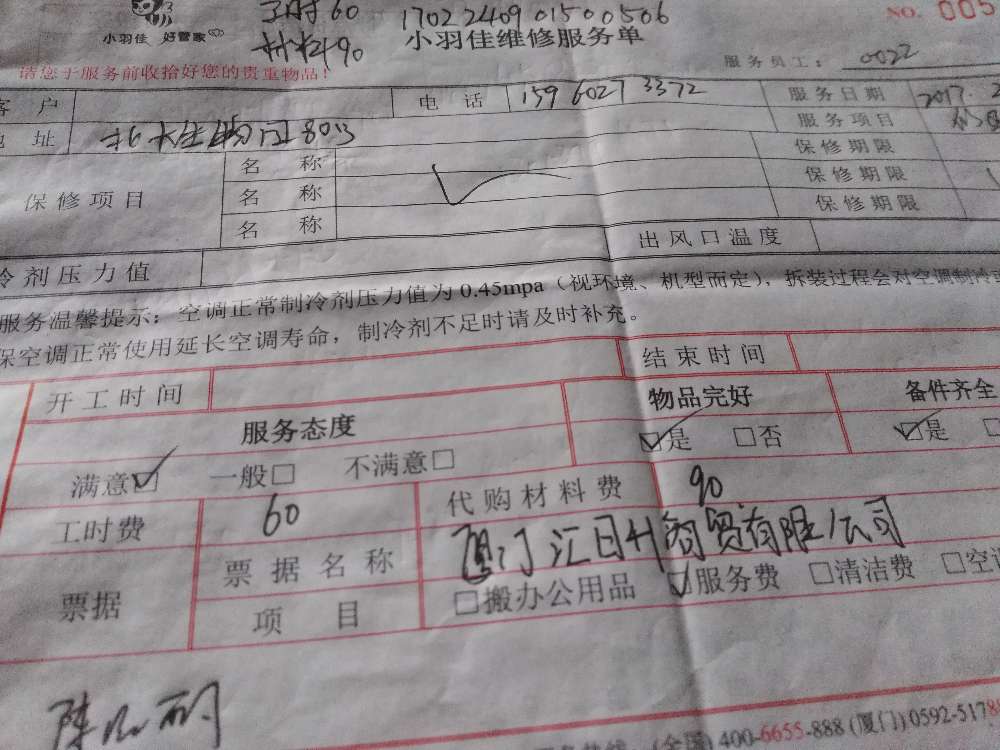 工时60 1702240901500506 NO. 005
小羽佳 好管家 材料90 小羽佳维修服务单
请您于服务前收拾好您的贵重物品! 服务员工: 0022
客 户 电 话 15960273372 服务日期 2017.2
地 址 8013 服务项目
保修项目 名 称 保修期限
名 称 保修期限
名 称 保修期限
冷剂压力值 出风口温度
服务温馨提示:空调正常制冷剂压力值为0.45mpa(视环境、机型而定),拆装过程会对空调制冷
保空调正常使用延长空调寿命,制冷剂不足时请及时补充。
开工时间 结束时间
服务态度 物品完好 备件齐全
满意☑ 一般□ 不满意□ ☑是 □否 ☑是
工时费 60 代购材料费 90
票据 票据名称 厦门汇日升商贸有限公司
项 目 □搬办公用品 ☑服务费 □清洁费 □空
(全国) 400-6655-888 (厦门) 0592-5178